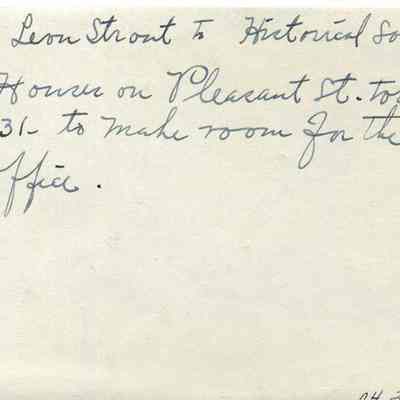 Leon Strout to Historical So
Houses on Pleasant St. to
31- to make room for the
ffice.
PH